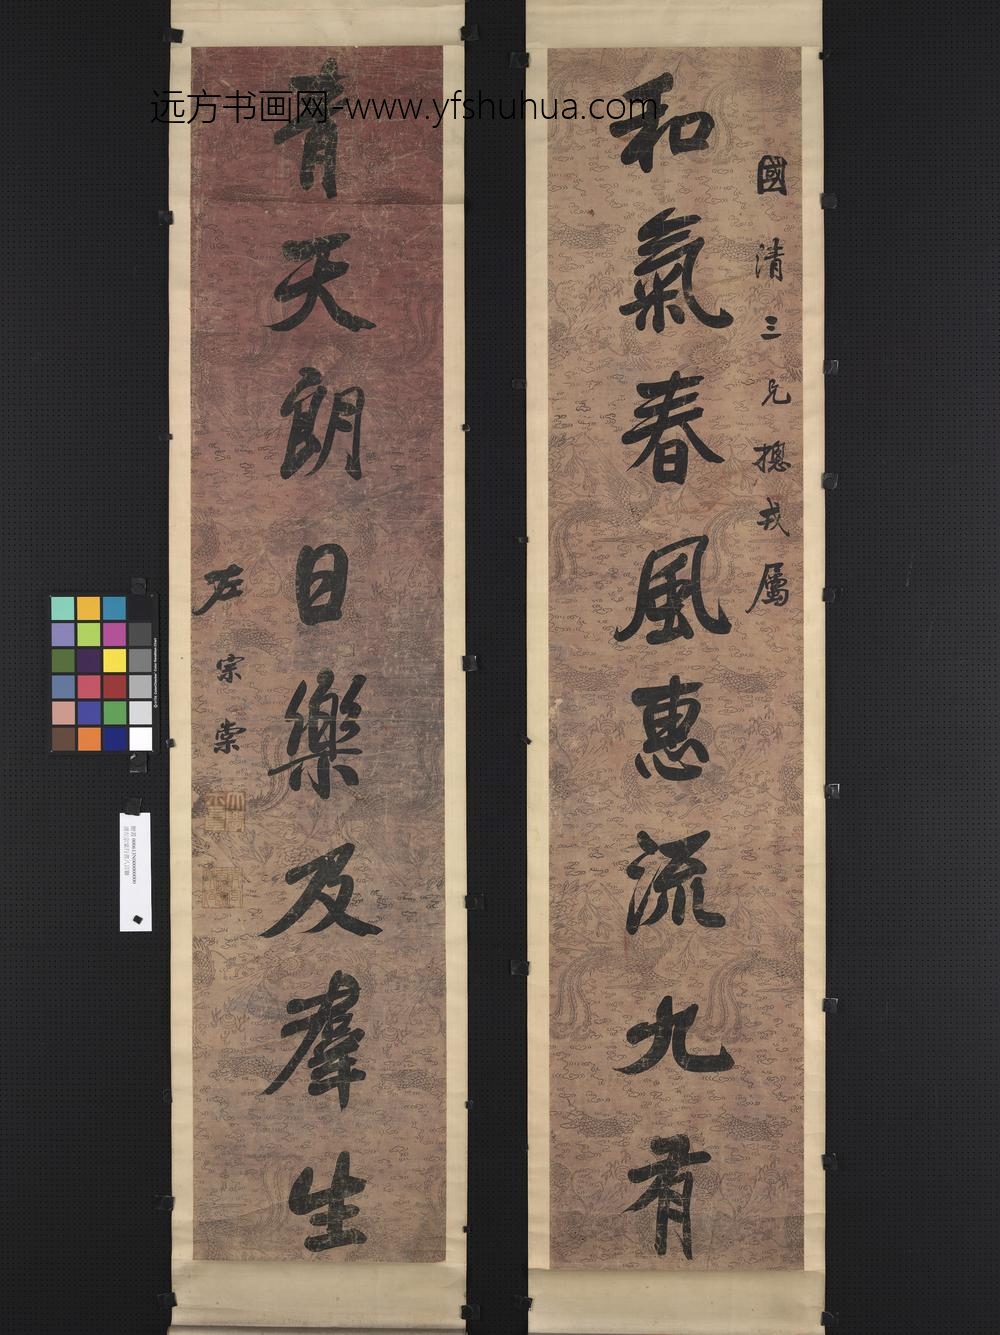 远方书画网-www.yfshuhua.com
國清三兄摠戎屬
和氣春風惠流九有
青天朗日樂及羣生
左宗棠